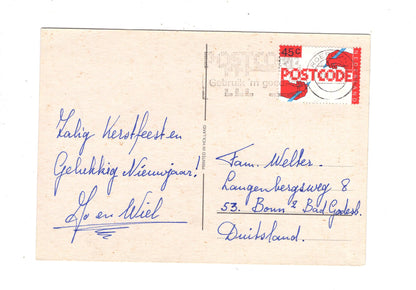 POSTCODE
Gebruik 'm goed
45c
POSTCODE
Zalig Kerstfeest en
Gelukkig Nieuwjaar!
Jo en Wiel
PRINTED IN HOLLAND
Fam. Welter.
Langenbergsweg 8
53. Bonn 2 Bad Godesb.
Duitsland.